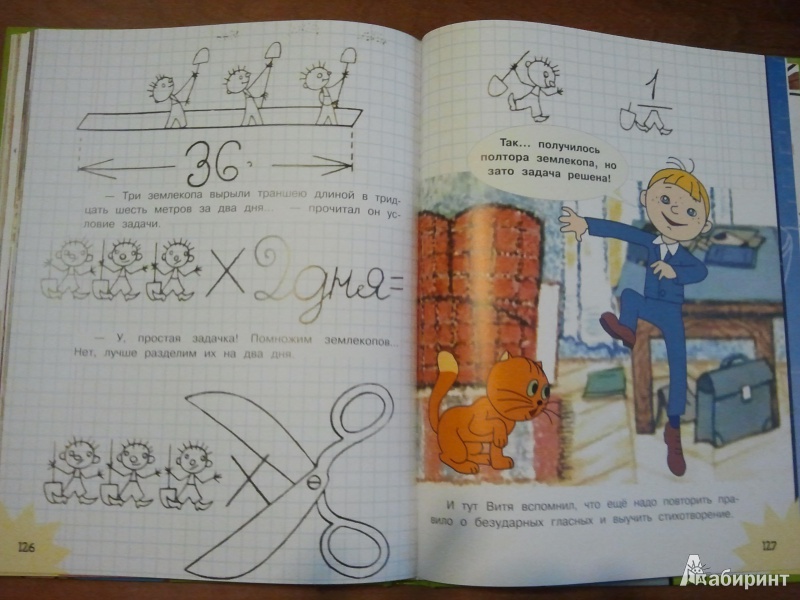 36
— Три землекопа вырыли траншею длиной в трид-
цать шесть метров за два дня... — прочитал он ус-
ловие задачи.
X 2 дня =
— У, простая задачка! Помножим землекопов...
Нет, лучше разделим их на два дня.
X
126
1
Так... получилось
полтора землекопа, но
зато задача решена!
И тут Витя вспомнил, что ещё надо повторить пра-
вило о безударных гласных и выучить стихотворение.
127
Лабиринт